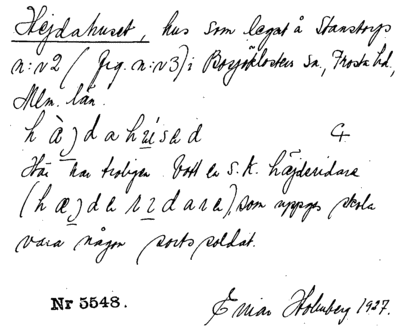 Hejdahuset, hus som legat å Stanstorps
n:r 2 (frg. n:r 3) i Borjeklosters sn, Frosta hd,
Mlm. län.
h à j d a h u s e d
Här har troligen bott en s.k. häjderidare
(h æ j d e r i d a r e), som uppges skola
vara någon sorts soldat.
Nr 5548. Einar Holmberg 1927.